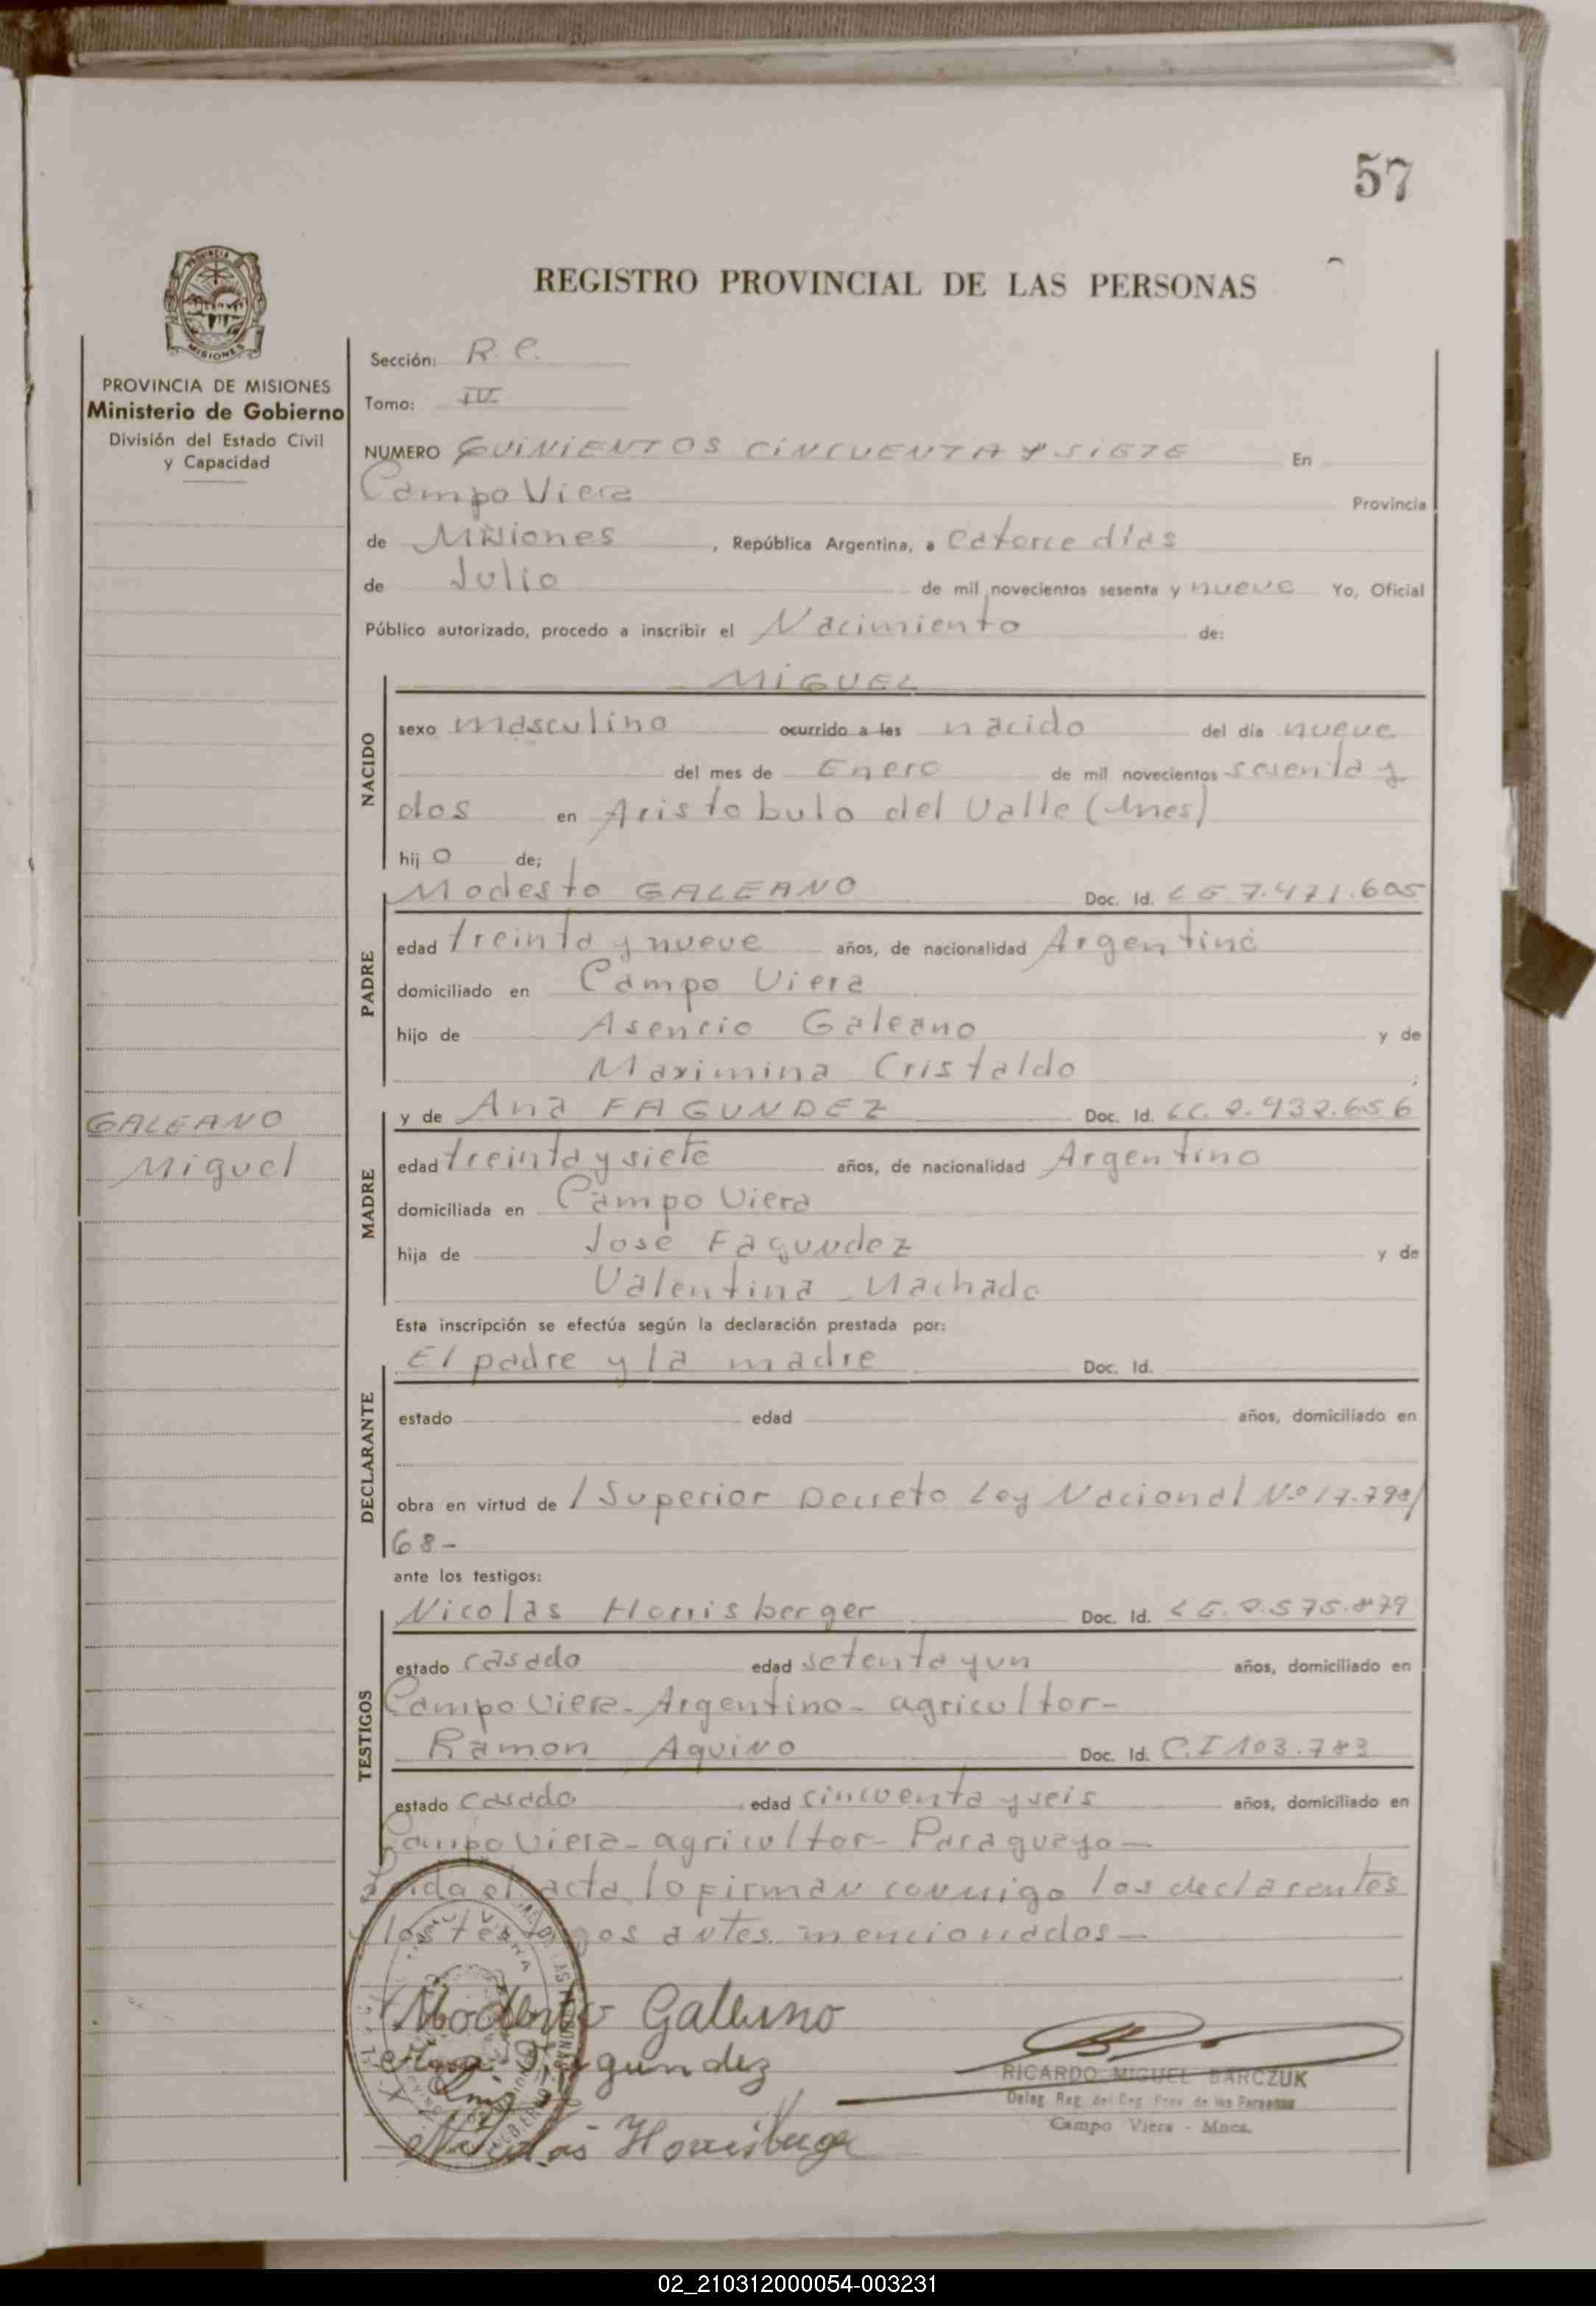 57
REGISTRO PROVINCIAL DE LAS PERSONAS
PROVINCIA DE MISIONES
Ministerio de Gobierno
División del Estado Civil
y Capacidad
GALEANO
Miguel
Sección: R. C.
Tomo: IV
NUMERO QUINIENTOS CINCUENTA Y SIETE En
Campo Viera Provincia
de Misiones, República Argentina, a catorce días
de Julio de mil novecientos sesenta y nueve Yo, Oficial
Público autorizado, procedo a inscribir el Nacimiento de:
MIGUEL
NACIDO
sexo masculino ocurrido a las nacido del día nueve
del mes de Enero de mil novecientos sesenta y
dos en Aristobulo del Valle (Mnes)
hijo de;
PADRE
Modesto GALEANO Doc. Id. LE 7.471.605
edad treinta y nueve años, de nacionalidad Argentino
domiciliado en Campo Viera
hijo de Asencio Galeano y de
Maximina Cristaldo;
MADRE
y de Ana FAGUNDEZ Doc. Id. LC. 2.932.656
edad treinta y siete años, de nacionalidad Argentino
domiciliada en Campo Viera
hija de José Fagundez y de
Valentina Machado
Esta inscripción se efectúa según la declaración prestada por:
DECLARANTE
El padre y la madre Doc. Id.
estado edad años, domiciliado en
obra en virtud de / Superior Decreto Ley Nacional Nº 17.798/
68-
ante los testigos:
TESTIGOS
Nicolás Horrisberger Doc. Id. LE.
estado casado edad setenta y un años, domiciliado en
Campo Viera- Argentino- agricultor-
Ramon Aquino Doc. Id. C.I 103.783
estado casado edad cincuenta y seis años, domiciliado en
Campo Viera- agricultor- Paraguayo-
Leida el acta lo firman conmigo los declarantes
y los testigos antes mencionados-
Modesto Galeano
Ana Fagundez
Nicolás Horrisberger
RICARDO MIGUEL BARCZUK
Deleg. Reg. del Reg. Prov. de las Personas
Campo Viera - Mnes.
02_210312000054-003231